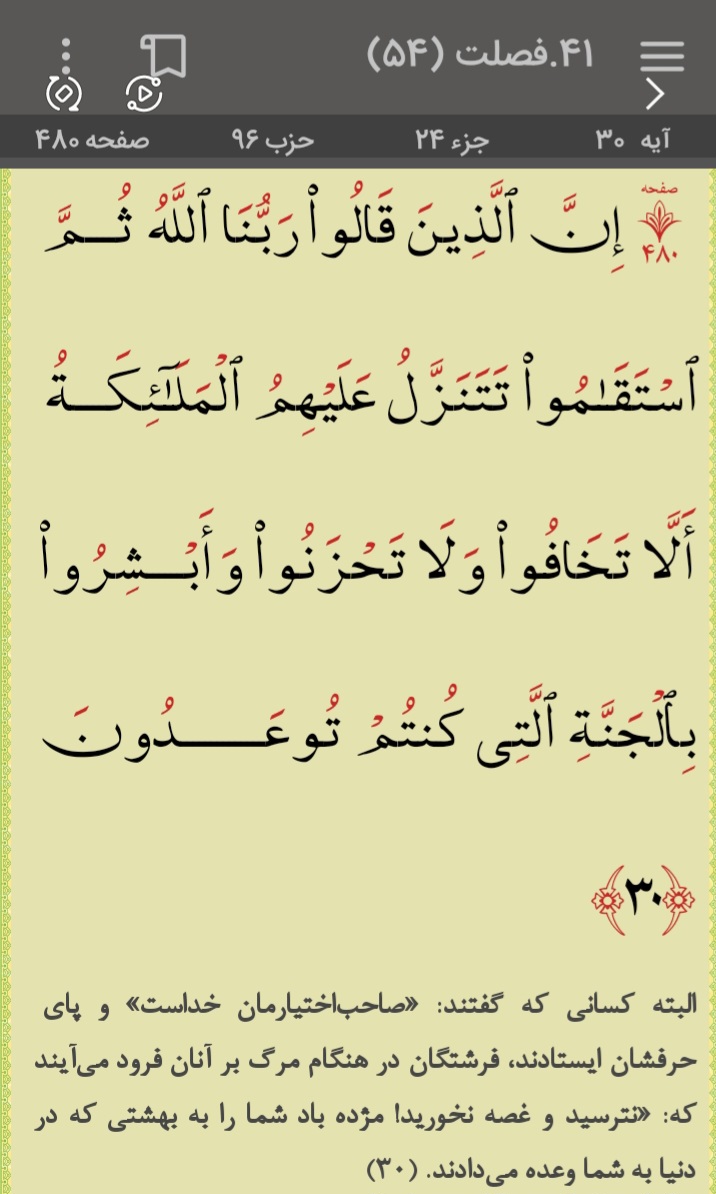 ۴۱.فصلت (۵۴)
آیه ۳۰ جزء ۲۴ حزب ۹۶ صفحه ۴۸۰
صفحه
۴۸۰
إِنَّ ٱلَّذِينَ قَالُواْ رَبُّنَا ٱللَّهُ ثُمَّ
ٱسْتَقَٰمُواْ تَتَنَزَّلُ عَلَيْهِمُ ٱلْمَلَٰٓئِكَةُ
أَلَّا تَخَافُواْ وَلَا تَحْزَنُواْ وَأَبْشِرُواْ
بِٱلْجَنَّةِ ٱلَّتِى كُنتُمْ تُوعَدُونَ
﴿٣٠﴾
البته کسانی که گفتند: «صاحب‌اختیارمان خداست» و پای
حرفشان ایستادند، فرشتگان در هنگام مرگ بر آنان فرود می‌آیند
که: «نترسید و غصه نخورید! مژده باد شما را به بهشتی که در
دنیا به شما وعده می‌دادند. (۳۰)